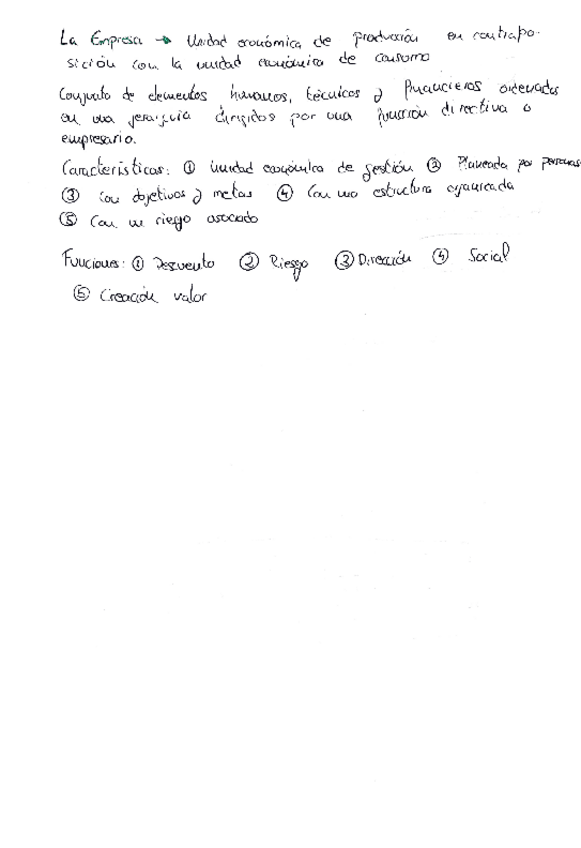 La Empresa → Unidad económica de producción en contrapo-
sición con la unidad económica de consumo
Conjunto de elementos humanos, técnicos y financieros ordenados
en una jerarquía dirigidos por una función directiva o
empresario.
Características: ① unidad económica de gestión ② Planeada por personas
③ con objetivos y metas ④ Con una estructura organizada
⑤ Con un riesgo asociado
Funciones: ① Descuento ② Riesgo ③ Dirección ④ Social
⑤ Creación valor